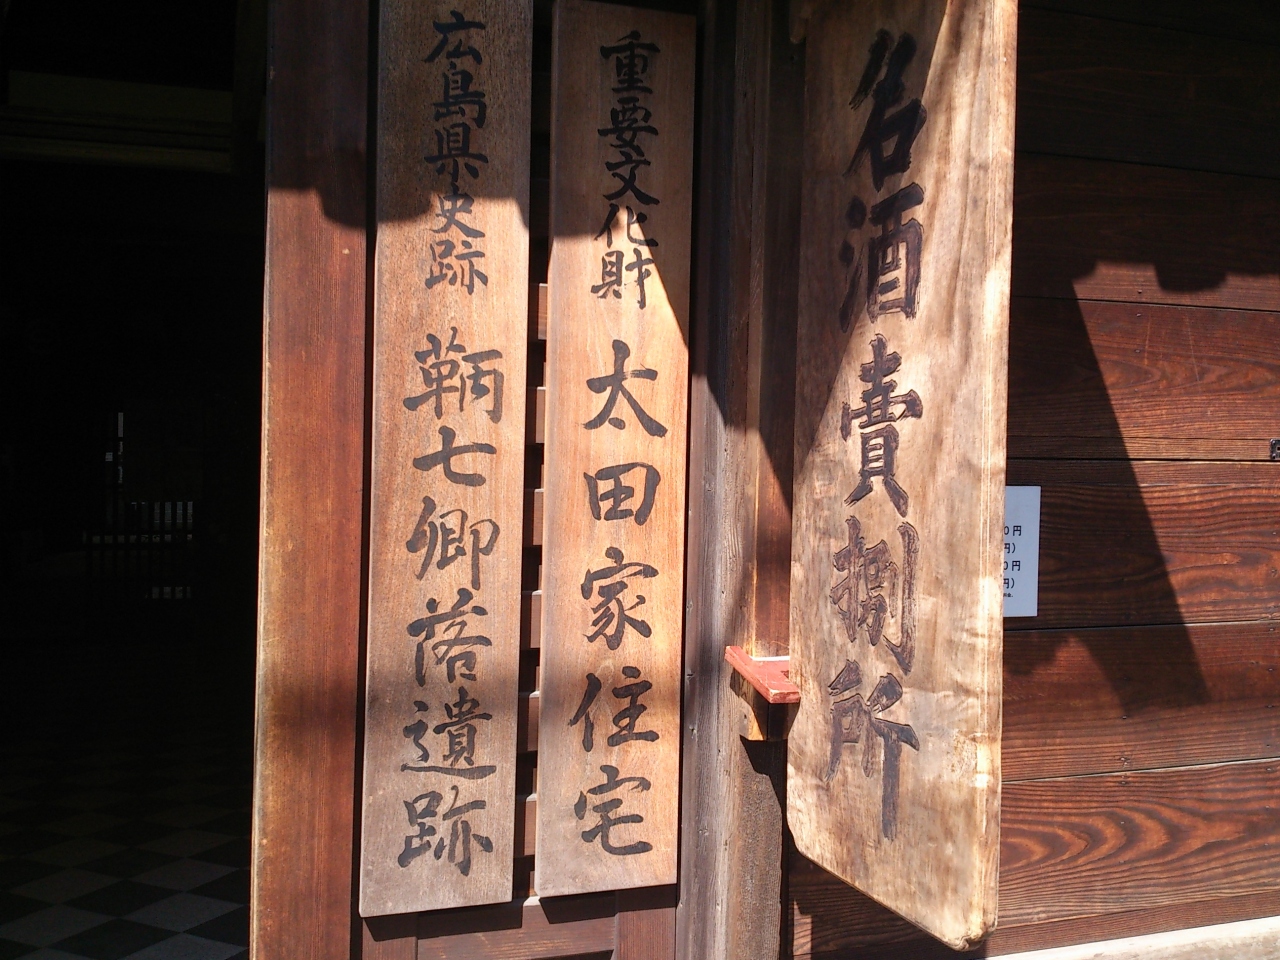 名酒賣捌所
重要文化財 太田家住宅
広島県史跡 鞆七卿落遺跡
0円
円)
0円
円)